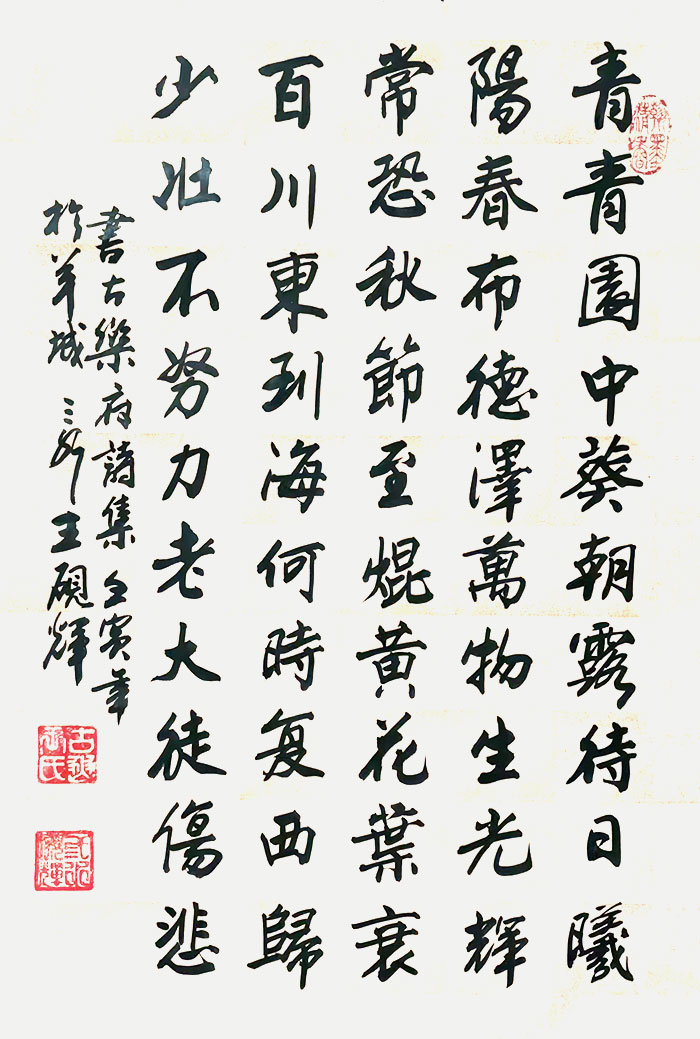 青青園中葵朝露待日曦
陽春布德澤萬物生光輝
常恐秋節至焜黄花葉衰
百川東到海何時复西歸
少壯不努力老大徒傷悲
書古樂府詩集 壬寅年
於羊城 王硯輝